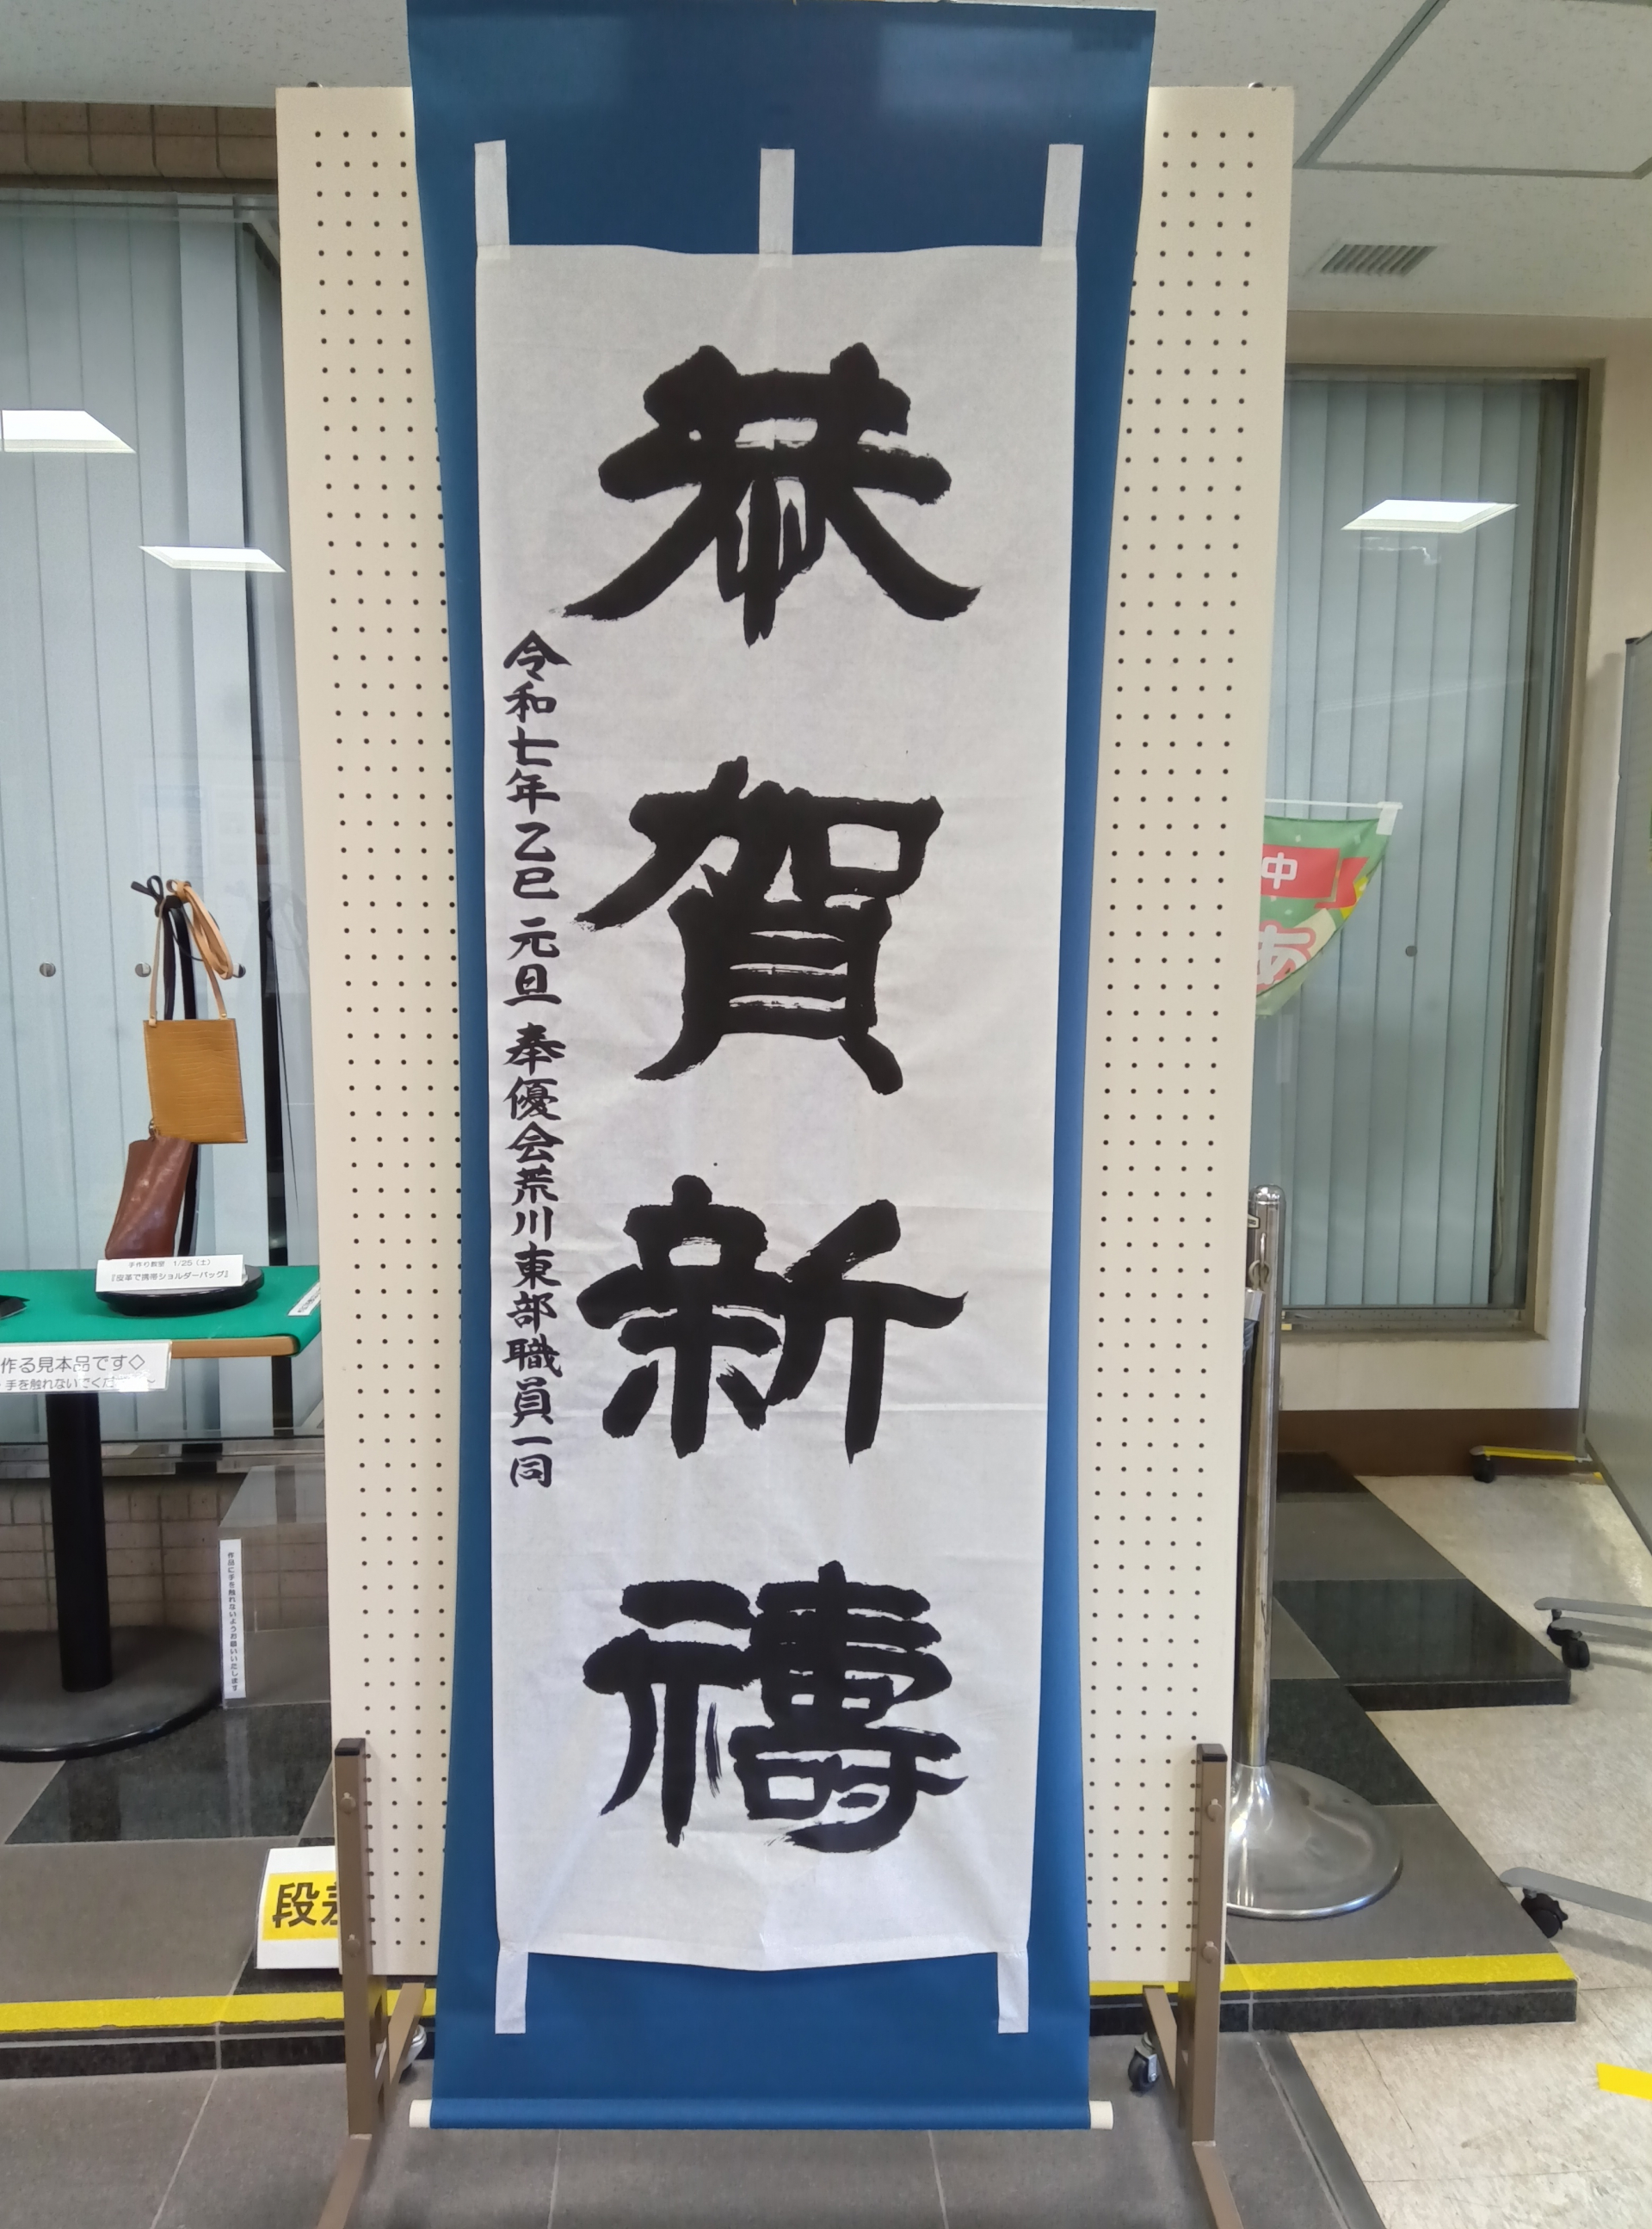 恭賀新禱
令和七年乙巳 元旦 奉優会荒川東部職員一同
手作り教室 1/25(土)
『皮革で携帯ショルダーバッグ』
作る見本品です◇
手を触れないでくだ
作品に手を触れないようお願いいたします
段差
中
あ